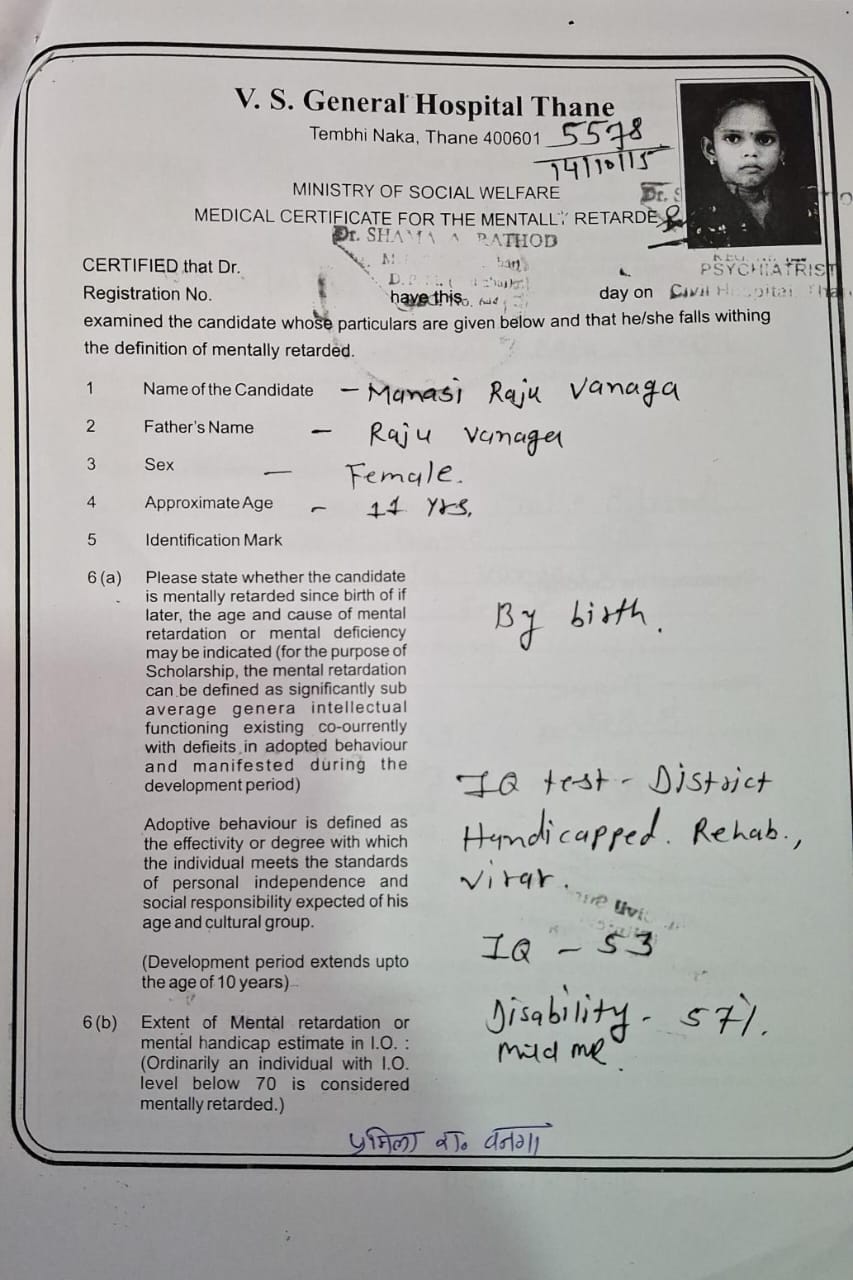 V. S. General Hospital Thane
Tembhi Naka, Thane 400601
5578
14/10/15
MINISTRY OF SOCIAL WELFARE
MEDICAL CERTIFICATE FOR THE MENTALLY RETARDE
Dr. SHAMA A RATHOD
CERTIFIED that Dr.
PSYCHIATRIST
Registration No. have this day on Civil Hospital
examined the candidate whose particulars are given below and that he/she falls withing
the definition of mentally retarded.
1 Name of the Candidate - Manasi Raju Vanaga
2 Father's Name - Raju Vanaga
3 Sex - Female.
4 Approximate Age - 11 yrs.
5 Identification Mark
6 (a) Please state whether the candidate
is mentally retarded since birth of if
later, the age and cause of mental
retardation or mental deficiency
may be indicated (for the purpose of
Scholarship, the mental retardation
can be defined as significantly sub
average genera intellectual
functioning existing co-ourrently
with defieits in adopted behaviour
and manifested during the
development period)
By birth.
Adoptive behaviour is defined as
the effectivity or degree with which
the individual meets the standards
of personal independence and
social responsibility expected of his
age and cultural group.
IQ test - District
Handicapped. Rehab.,
Virar.
(Development period extends upto
the age of 10 years)
IQ - 53
6 (b) Extent of Mental retardation or
mental handicap estimate in I.O. :
(Ordinarily an individual with I.O.
level below 70 is considered
mentally retarded.)
Disability - 57%.
Mild MR.
प्रमिला रा. वनगा